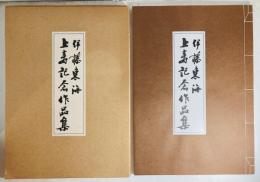 伊藤東海
上寿記念作品集
伊藤東海
上寿記念作品集